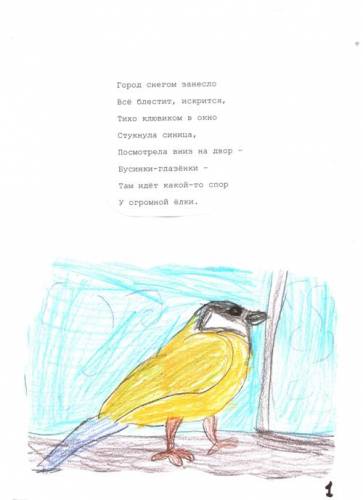 Город снегом занесло
Всё блестит, искрится,
Тихо клювиком в окно
Стукнула синица,
Посмотрела вниз на двор –
Бусинки-глазёнки –
Там идёт какой-то спор
У огромной ёлки.
1